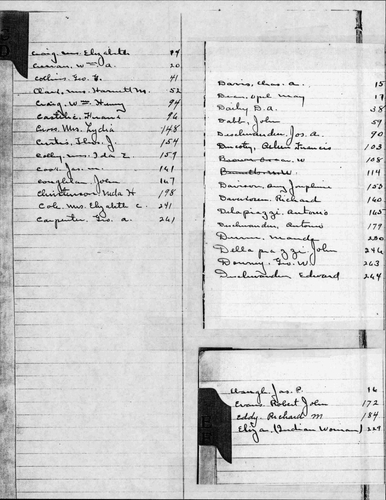 Craig, Mrs. Elizabeth 14
Curran, Wm. A. 20
Collins, Geo. F. 41
Clark, Mrs. Harriett M. 52
Craig, Wm. Henry 94
Castillo, Frank 96
Cross, Mrs. Lydia 148
Curtis, Thos. J. 154
Colby, Mrs. Ida E. 159
Cook, Jas. M. 161
Coughlan, John 167
Christenson, Neda H. 198
Cole, Mrs. Elizabeth C. 241
Carpenter, Geo. A. 261
Davis, Chas. A. 15
Dean, Opal May 17
Daily, D. A. 38
Dabb, John 59
Deschwanden, Jos. A. 90
Francis 103
108
114
Davison, Amy Josephine 153
Davidson, Richard 160
Delapiazzi, Antonio 165
Deschwanden, Antonio 179
Dunn, Maude 230
Dellapiazzi, John 246
Downey, Geo. W. 263
Deschwanden, Edward 264
Waugh, Jas. P. 16
Evans, Robert John 172
Eddy, Richard M. 184
(Indian Woman) 229